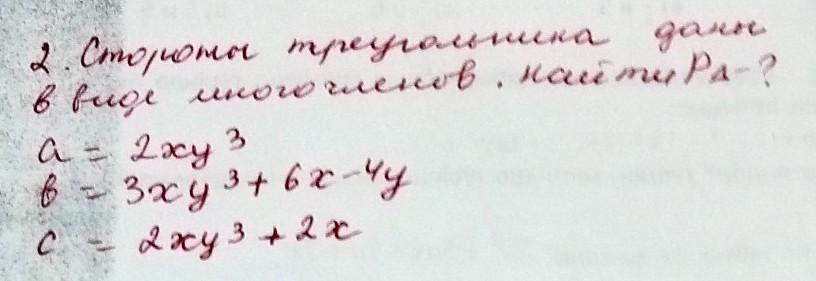 2. Стороны треугольника даны
в виде многочленов. Найти P∆-?
a = 2xy³
b = 3xy³ + 6x - 4y
c = 2xy³ + 2x